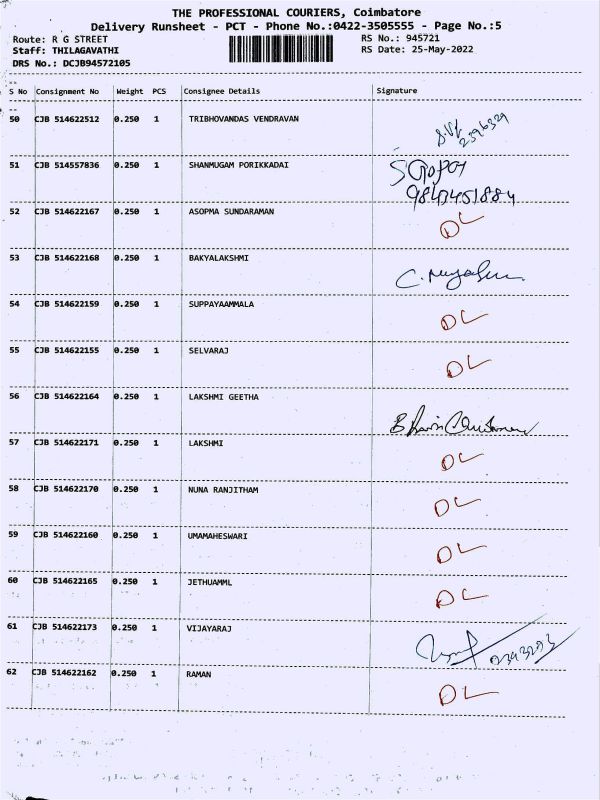 THE PROFESSIONAL COURIERS, Coimbatore
Delivery Runsheet - PCT - Phone No.:0422-3505555 - Page No.:5
Route: R G STREET RS No.: 945721
Staff: THILAGAVATHI RS Date: 25-May-2022
DRS No.: DCJB94572105
S No Consignment No Weight PCS Consignee Details Signature
50 CJB 514622512 0.250 1 TRIBHOVANDAS VENDRAVAN
51 CJB 514557836 0.250 1 SHANMUGAM PORIKKADAI
52 CJB 514622167 0.250 1 ASOPMA SUNDARAMAN DL
53 CJB 514622168 0.250 1 BAKYALAKSHMI
54 CJB 514622159 0.250 1 SUPPAYAAMMALA DL
55 CJB 514622155 0.250 1 SELVARAJ DL
56 CJB 514622164 0.250 1 LAKSHMI GEETHA
57 CJB 514622171 0.250 1 LAKSHMI DL
58 CJB 514622170 0.250 1 NUNA RANJITHAM DL
59 CJB 514622160 0.250 1 UMAMAHESWARI DL
60 CJB 514622165 0.250 1 JETHUAMML DL
61 CJB 514622173 0.250 1 VIJAYARAJ
62 CJB 514622162 0.250 1 RAMAN DL